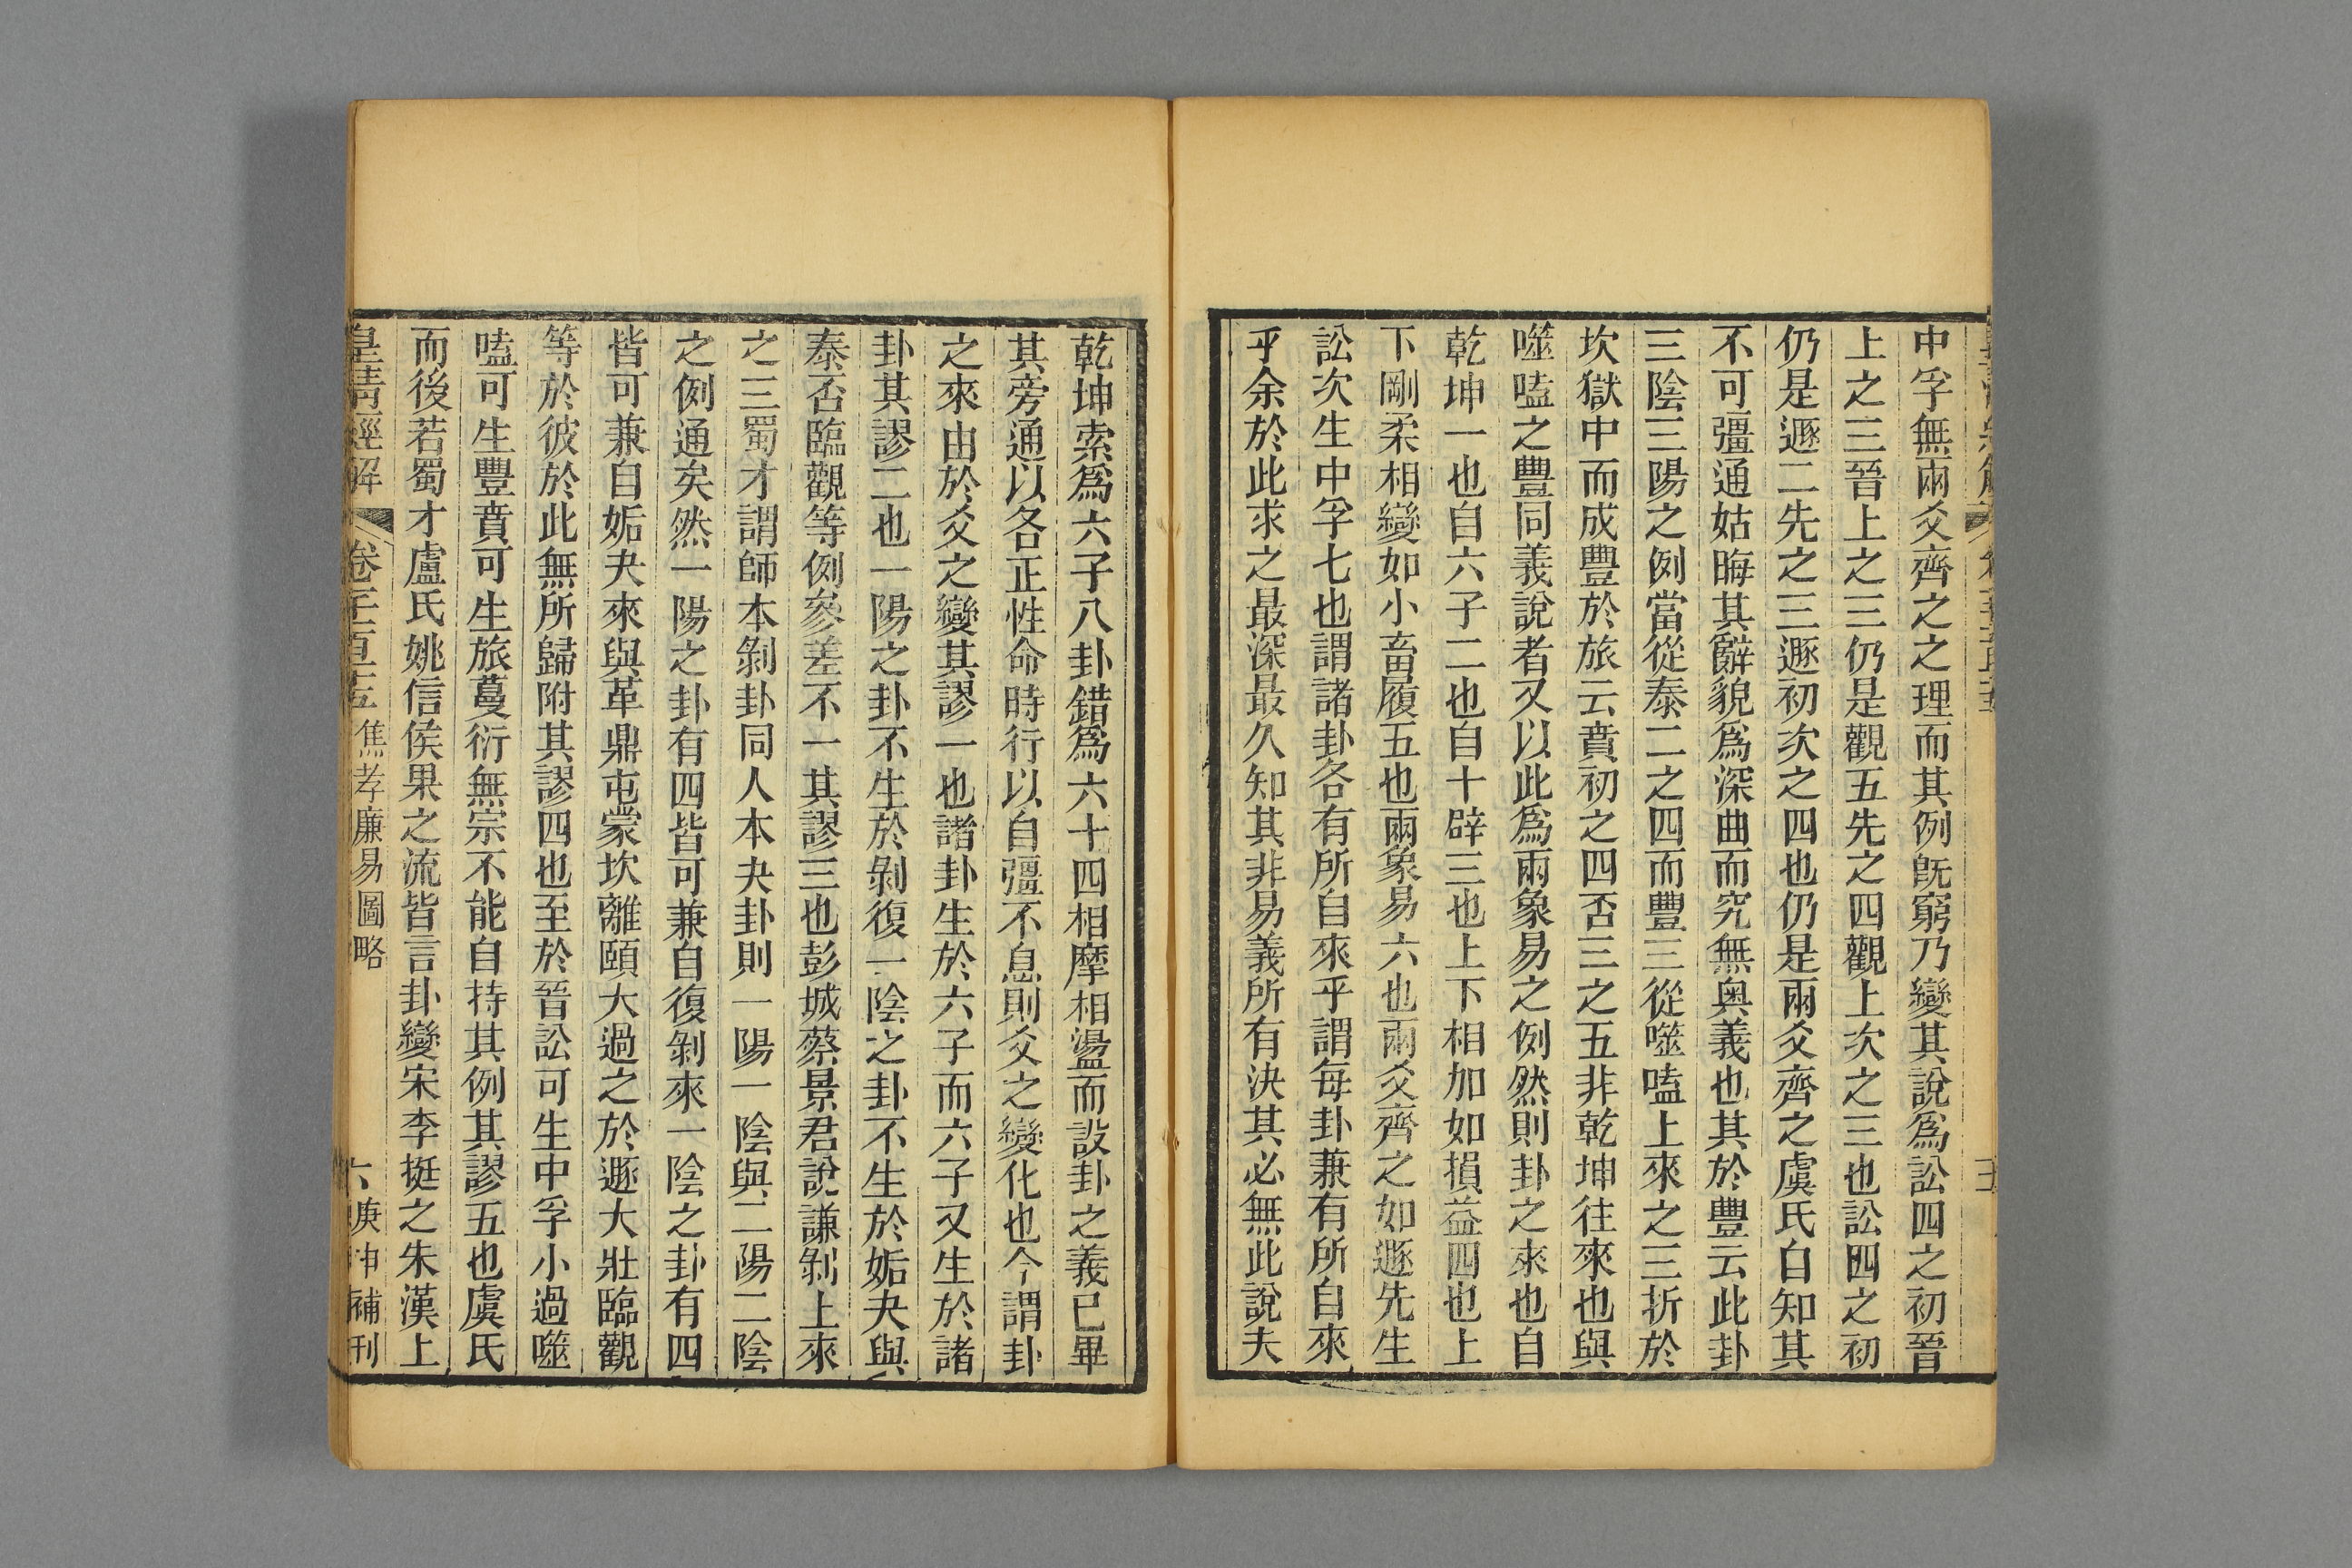 中孚無兩爻齊之之理而其例旣窮乃變其說爲訟四之初晉
上之三晉上之三仍是觀五先之四觀上次之三也訟四之初
仍是遯二先之三遯初次之四也仍是兩爻齊之虞氏白知其
不可彊通姑晦其辭貌爲深曲而究無奥義也其於豐云此卦
三陰三陽之例當從泰二之四而豐三從噬嗑上來之三折於
坎獄中而成豐於旅云賁初之四否三之五非乾坤往來也與
噬嗑之豐同義說者又以此爲兩象易之例然則卦之來也自
乾坤一也自六子二也自十辟三也上下相加如損益四也上
下剛柔相變如小畜履五也兩象易六也兩爻齊之如遯先生
訟次生中孚七也謂諸卦各有所自來乎謂每卦兼有所自來
乎余於此求之最深最久知其非易義所有決其必無此說夫
乾坤索爲六子八卦錯爲六十四相摩相盪而設卦之義已畢
其旁通以各正性命時行以自彊不息則爻之變化也今謂卦
之來由於爻之變其謬一也諸卦生於六子而六子又生於諸
卦其謬二也一陽之卦不生於剝復一陰之卦不生於姤夬與
泰否臨觀等例參差不一其謬三也彭城蔡景君說謙剝上來
之三蜀才謂師本剝卦同人本夬卦則一陽一陰與二陽二陰
之例通矣然一陽之卦有四皆可兼自復剝來一陰之卦有四
皆可兼自姤夬來與革鼎屯蒙坎離頤大過之於遯大壯臨觀
等於彼於此無所歸附其謬四也至於晉訟可生中孚小過噬
嗑可生豐賁可生旅蔓衍無宗不能自持其例其謬五也虞氏
而後若蜀才盧氏姚信侯果之流皆言卦變宋李挺之朱漢上
皇清經解 卷 焦孝廉易圖略 六 庚申補刊